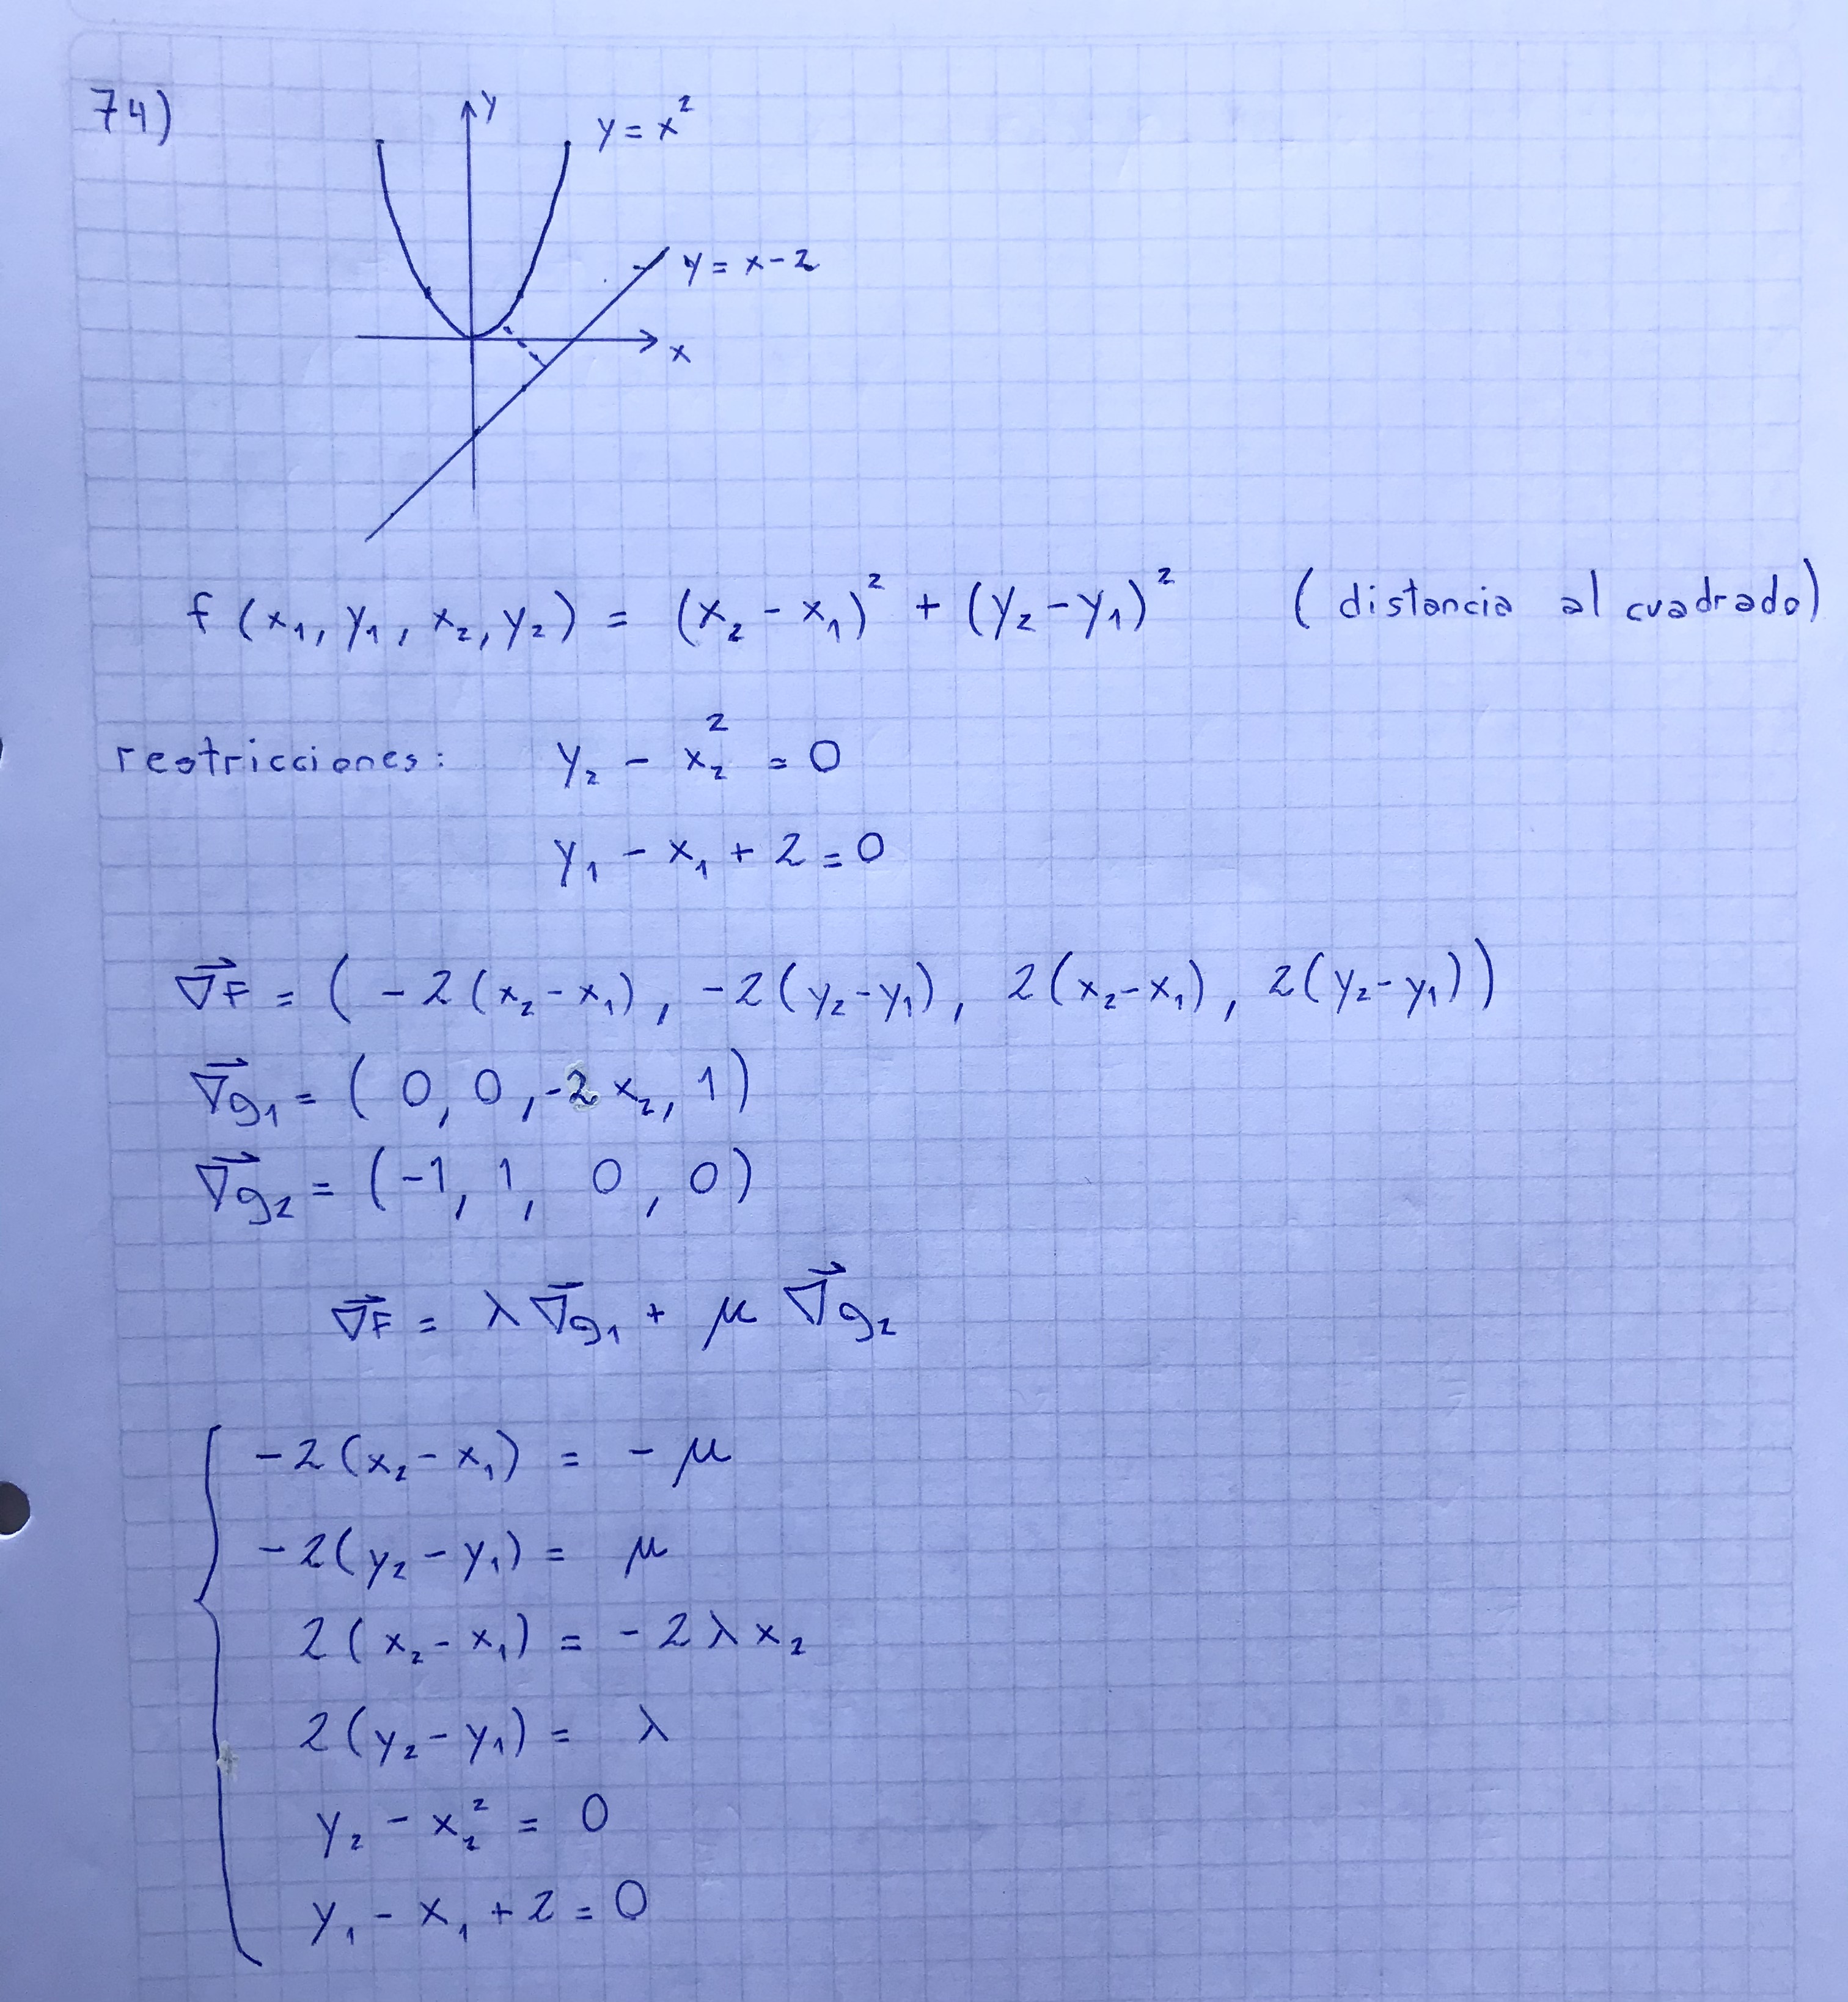 74)
y
y = x²
y = x - 2
x
f (x₁, y₁, x₂, y₂) = (x₂ - x₁)² + (y₂ - y₁)² (distancia al cuadrado)
restricciones: y₂ - x₂² = 0
y₁ - x₁ + 2 = 0
∇⃗F = ( -2(x₂ - x₁), -2(y₂ - y₁), 2(x₂ - x₁), 2(y₂ - y₁))
∇⃗g₁ = ( 0, 0, -2x₂, 1)
∇⃗g₂ = (-1, 1, 0, 0)
∇⃗F = λ∇⃗g₁ + μ ∇⃗g₂
-2(x₂ - x₁) = -μ
-2(y₂ - y₁) = μ
2(x₂ - x₁) = -2λx₂
2(y₂ - y₁) = λ
y₂ - x₂² = 0
y₁ - x₁ + 2 = 0